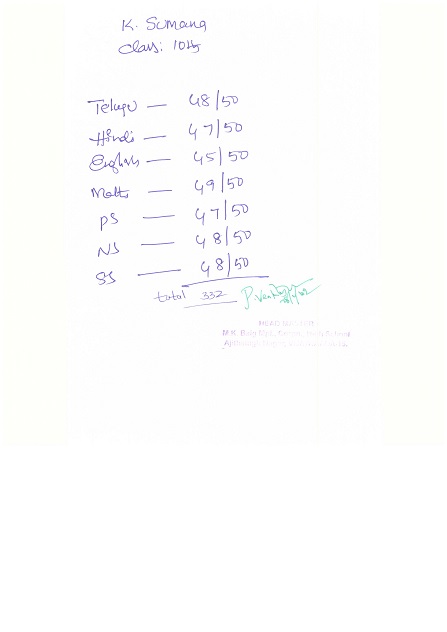 K. Sumana
Class: 10th
Telugu — 48/50
Hindi — 47/50
English — 45/50
Maths — 49/50
PS — 47/50
NS — 48/50
SS — 48/50
total 332
HEAD MASTER
M.K. Baig School